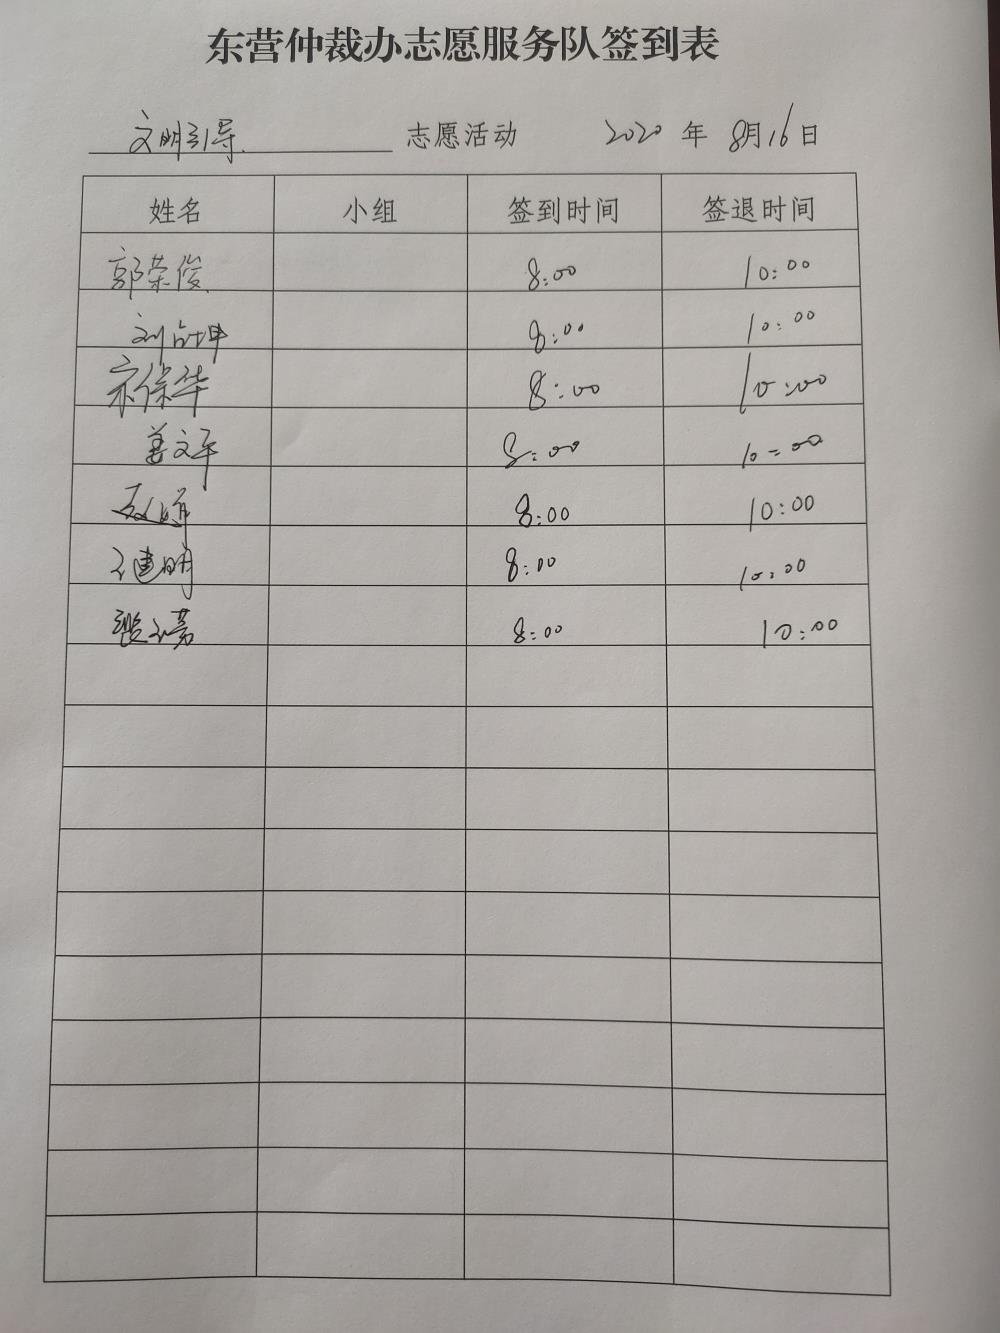 东营仲裁办志愿服务队签到表
文明引导 志愿活动 2020 年 8月16日
姓名 小组 签到时间 签退时间
郭荣俊 8:00 10:00
刘 坤 8:00 10:00
宋保华 8:00 10:00
姜文平 8:00 10:00
8:00 10:00
王建明 8:00 10:00
8:00 10:00